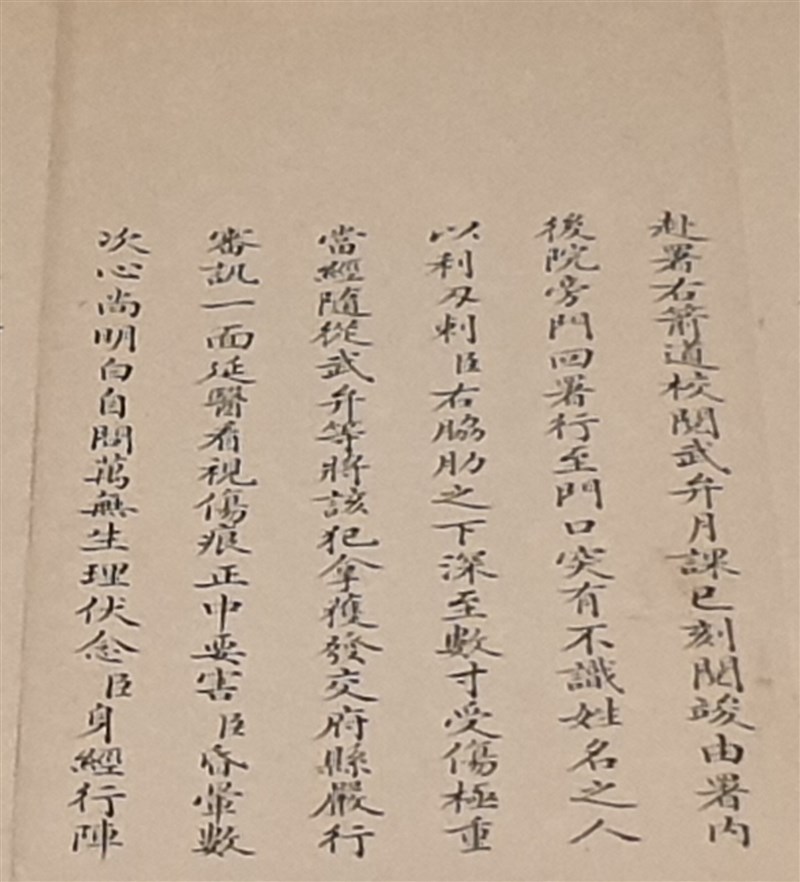 赴署右箭道校閱武弁月課巳刻閱竣由署內
後院旁門回署行至門口突有不識姓名之人
以利刃刺臣右脇肋之下深至數寸受傷極重
當經隨從武弁等將該犯拿獲發交府縣嚴行
審訊一面延醫看視傷痕正中要害臣昏暈數
次心尚明白自問萬無生理伏念臣身經行陣